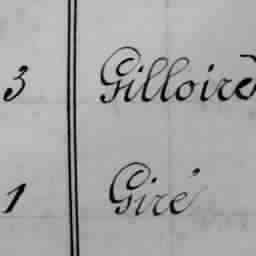 3 Gilloire
1 Giré